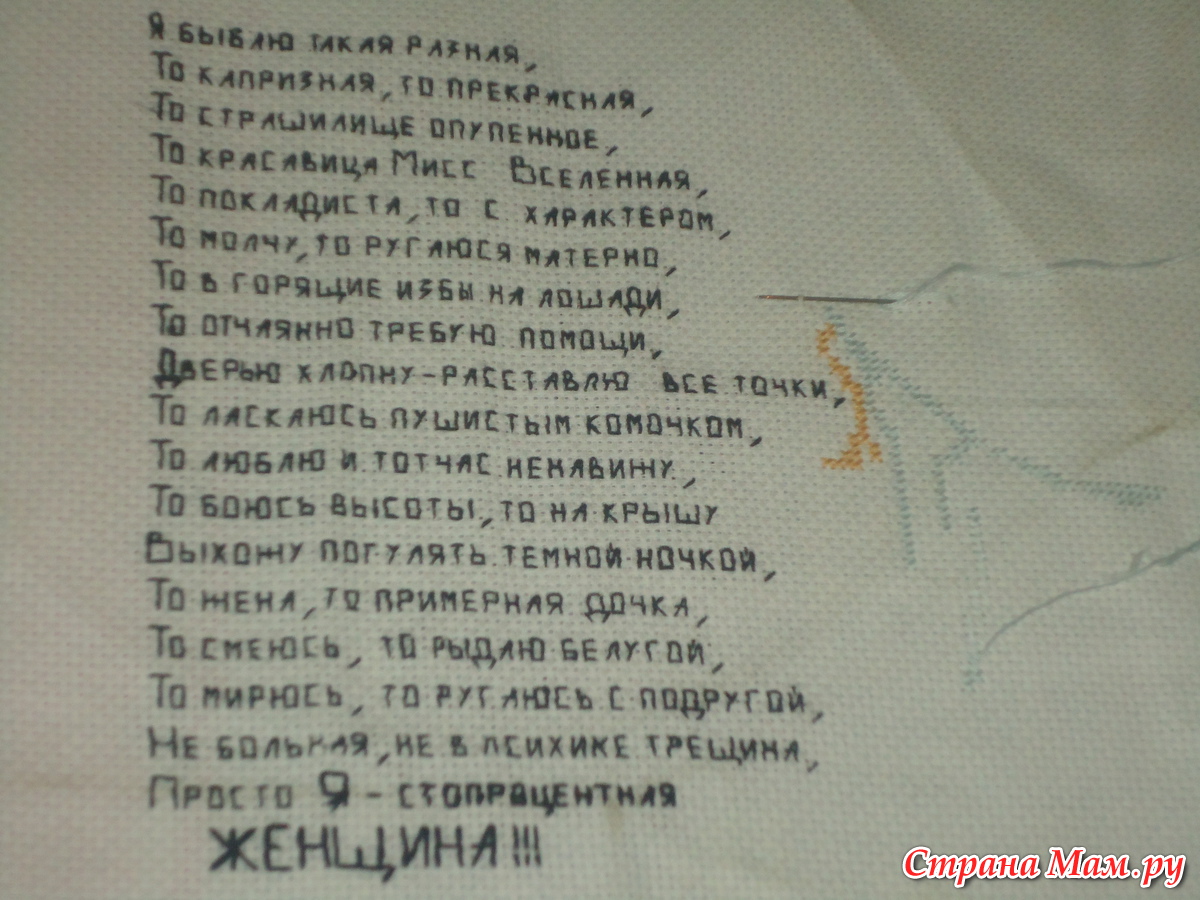 Я бываю такая разная,
То капризная, то прекрасная,
То страшилище опупенное,
То красавица Мисс Вселенная,
То покладиста, то с характером,
То молчу, то ругаюся матерно,
То в горящие избы на лошади,
То отчаянно требую помощи,
Дверью хлопну-расставлю все точки,
То ласкаюсь пушистым комочком,
То люблю и тотчас ненавижу,
То боюсь высоты, то на крышу
Выхожу погулять темной ночкой,
То жена, то примерная дочка,
То смеюсь, то рыдаю белугой,
То мирюсь, то ругаюсь с подругой,
Не больная, не в психике трещина,
Просто Я - стопроцентная
ЖЕНЩИНА!!!
Страна Мам.ру